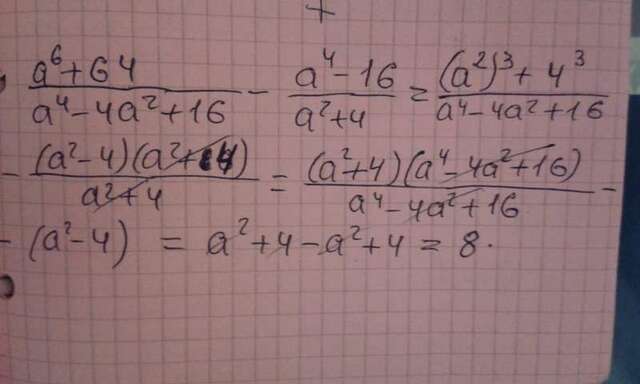 (a⁶+64)/(a⁴-4a²+16) - (a⁴-16)/(a²+4) = ((a²)³+4³)/(a⁴-4a²+16)
- ((a²-4)(a²+4))/(a²+4) = ((a²+4)(a⁴-4a²+16))/(a⁴-4a²+16) -
- (a²-4) = a²+4-a²+4 = 8.